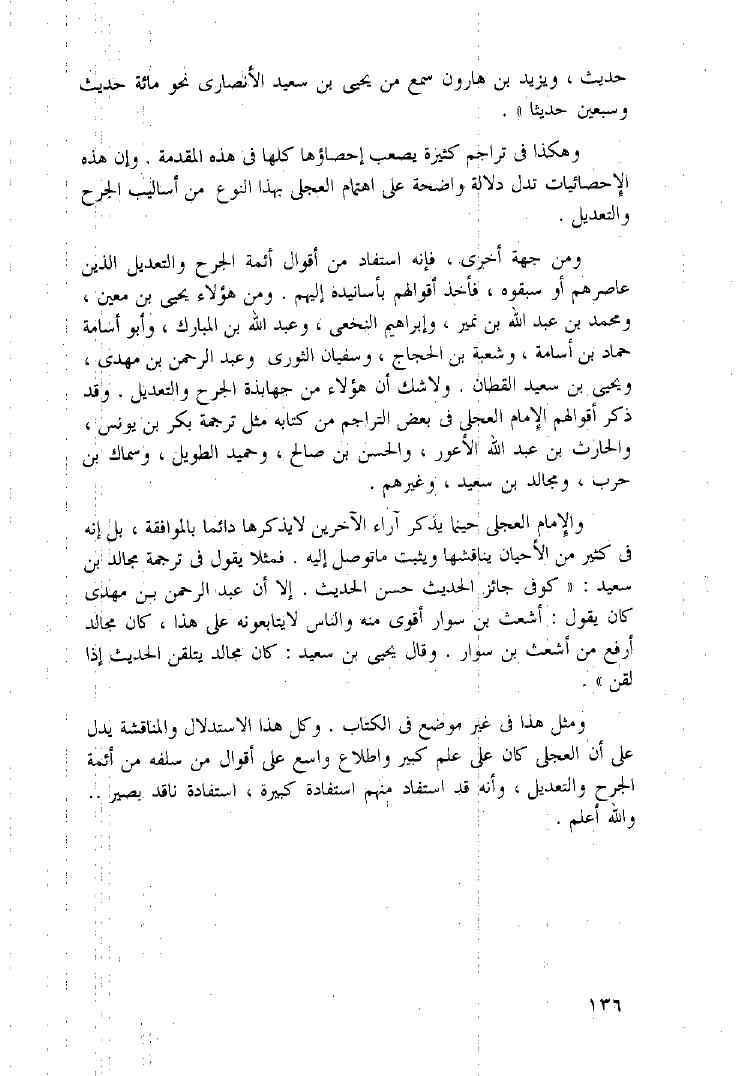 حديث ، ويزيد بن هارون سمع من يحيى بن سعيد الأنصارى نحو مائة حديث
وسبعين حديثا » .
وهكذا فى تراجم كثيرة يصعب إحصاؤها كلها فى هذه المقدمة . وإن هذه
الإحصائيات تدل دلالة واضحة على اهتمام العجلى بهذا النوع من أساليب الجرح
والتعديل .
ومن جهة أخرى ، فإنه استفاد من أقوال أئمة الجرح والتعديل الذين
عاصرهم أو سبقوه ، فأخذ أقوالهم بأسانيده إليهم . ومن هؤلاء يحيى بن معين ،
ومحمد بن عبد الله بن نمير ، وإبراهيم النخعى ، وعبد الله بن المبارك ، وأبو أسامة
حماد بن أسامة ، وشعبة بن الحجاج ، وسفيان الثورى وعبد الرحمن بن مهدى ،
ويحيى بن سعيد القطان . ولاشك أن هؤلاء من جهابذة الجرح والتعديل . وقد
ذكر أقوالهم الإمام العجلى فى بعض التراجم من كتابه مثل ترجمة بكر بن يونس ،
والحارث بن عبد الله الأعور ، والحسن بن صالح ، وحميد الطويل ، وسماك بن
حرب ، ومجالد بن سعيد ، وغيرهم .
والإمام العجلى حينما يذكر آراء الآخرين لايذكرها دائما بالموافقة ، بل إنه
فى كثير من الأحيان يناقشها ويثبت ماتوصل إليه . فمثلا يقول فى ترجمة مجالد بن
سعيد : « كوفى جائز الحديث حسن الحديث . إلا أن عبد الرحمن بن مهدى
كان يقول : أشعث بن سوار أقوى منه والناس لايتابعونه على هذا ، كان مجالد
أرفع من أشعث بن سوار . وقال يحيى بن سعيد : كان مجالد يتلقن الحديث إذا
لقن » .
ومثل هذا فى غير موضع فى الكتاب . وكل هذا الاستدلال والمناقشة يدل
على أن العجلى كان على علم كبير واطلاع واسع على أقوال من سلفه من أئمة
الجرح والتعديل ، وأنه قد استفاد منهم استفادة كبيرة ، استفادة ناقد بصير ..
والله أعلم .
١٣٦